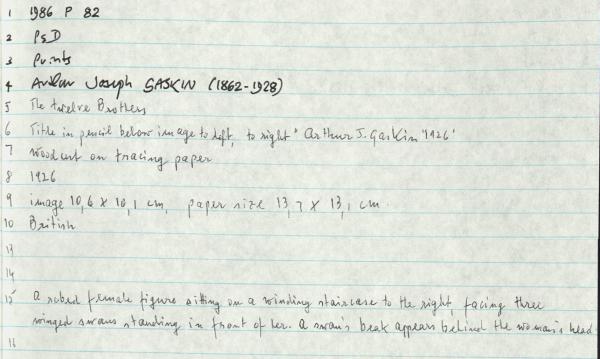 1 1986 P 82
2 P&D
3 Prints
4 Arthur Joseph GASKIN (1862-1928)
5 The twelve Brothers
6 Title in pencil below image to left, to right "Arthur J. Gaskin '1926'
7 Woodcut on tracing paper
8 1926
9 image 10,6 x 10,1 cm, paper size 13,7 x 13,1 cm.
10 British
13
14
15 A robed female figure sitting on a winding staircase to the right, facing three
winged swans standing in front of her. A swan's beak appears behind the woman's head